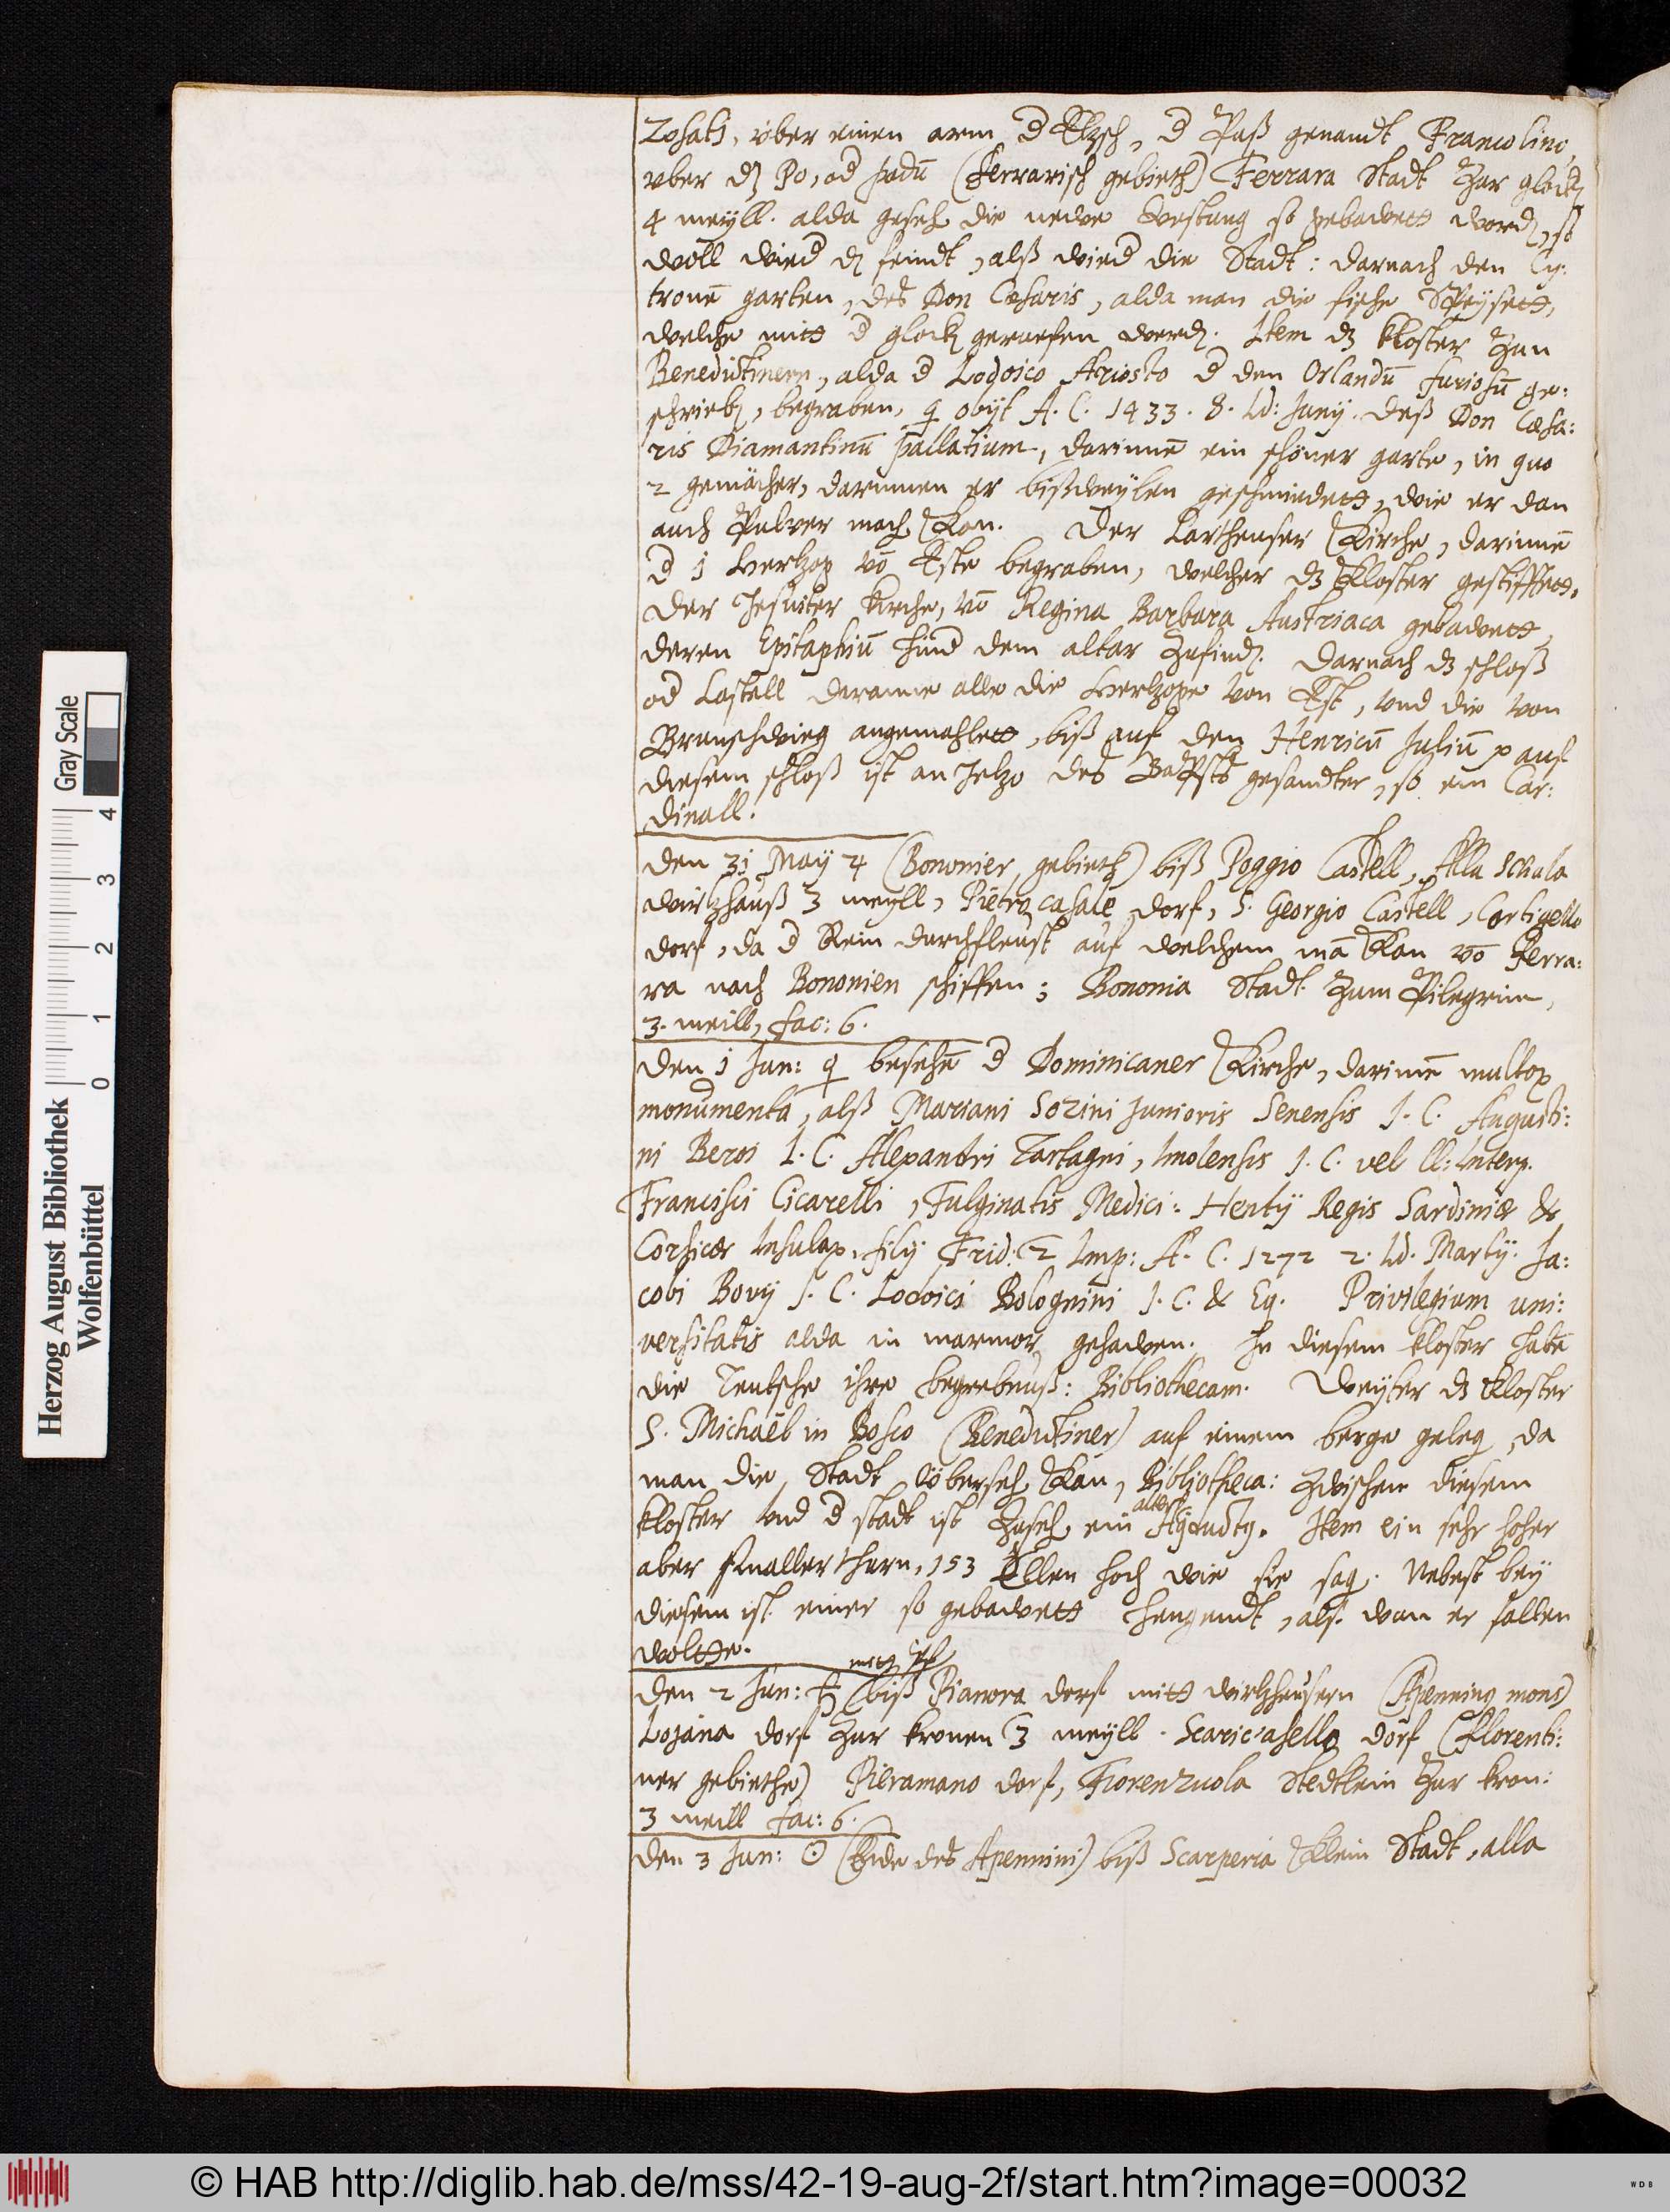 Zosatz, über einen arm d Etzsch, d Paß genandt Francolino,
vber dz Po, od padū (Ferrarisch gebieth) Ferrara Stadt Zur glock
4 meyll. alda geseh die newe Vestung so gebawett word, so
woll wied d feindt, alß wied die Stadt: darnach den Cy:
tronē garten, des Don Cæsaris, alda man die fische Speysett,
welche mitt d glock geruefen werd. Item dz kloster Zun
Benedictinern, alda d Lodoico Ariosto d den Orlandū furiosū ge:
schrieb, begraben, q obijt A. C. 1433. 8. Id: Junij. deß Don Cæsa:
ris Diamantinū pallatium, darinnē ein schöner garte, in quo
2 gemächer, darinnen er bißweylen geschmiedett, wie er dan
auch Pulver mach kan. Der Carthenser Kirche, darinnē
d 1 Hertzog vō Este begraben, welcher dz Kloster gestifftett.
Der Jesuiter kirche, vō Regina Barbara Austriaca gebawett,
deren Epitaphiū hind dem altar Zufind. Darnach dz schloß
od Castell daranne alle die Hertzoge von Est, vnd die von
Braunschwieg angemahlett, biß auf den Henricū Juliū, auf
diesem schloß ist an Jetzo des Bapsts gesandter, so ein Car:
dinall.
den 31 May ♃ (Bononier gebieth) biß Poggio Castell, Alla Schala
wirtzhauß 3 meyll, Pietro casale dorf, S. Georgio Castell, Cortigello
dorf, da d Rein durchfleust auf welchem mā kan vō Ferra:
ra nach Bononien schiffen; Bononia Stadt Zum Pilegrim,
3. meill, fac: 6.
den 1 Jun: ♀ besehē d Dominicaner Kirche, darinnē multoꝝ
monumenta, alß Mariani Sozini Junioris Senensis J. C. Augusti:
ni Beroi I. C. Alexandri Tartagni, Imolensis J. C. vel ll: Interp.
Francisci Cicarelli, Fulginatis Medici: Hentij Regis Sardiniæ &
Corsicæ Insulaꝝ, filij Frid: 2 Imp: A. C. 1272 2. Id. Martij. Ja:
cobi Bovij J. C. Lodoici Bolognini J. C. & Eq. Privilegium uni:
versitatis alda in marmor gehawen. In diesem kloster habē
die Teutsche ihre begrebnuß: Bibliothecam. Weyter dz Kloster
S. Michaël in Bosco (Benedictiner) auf einem berge geleg, da
man die Stadt überseh kan, Bibliotheca: Zwischen diesem
alter
kloster vnd d stadt ist Zuseh ein Aqæductg. Item ein sehr hoher
aber schmaller thurn, 153 Ellen hoch wie sie sag. Nebest bey
diesem ist einer so gebawett hengendt, als wan er fallen
woltte.
den 2 Jun: ♄ biß Pianora dorf mitt wirtzheusern (Apenninq mons)
Lojana dorf Zur kronen 3 meyll. Scaricasello dorf (Florenti:
ner gebiethe) Pieramano dorf, Fiorenzuola Stedtlein Zur kron:
3 meill fac: 6.
den 3 Jun: ☉ (Ende des Apennini) biß Scarperia klein Stadt, alla
Gray Scale
4 3 2 1 0
Herzog August Bibliothek
Wolfenbüttel
© HAB http://diglib.hab.de/mss/42-19-aug-2f/start.htm?image=00032
WDB